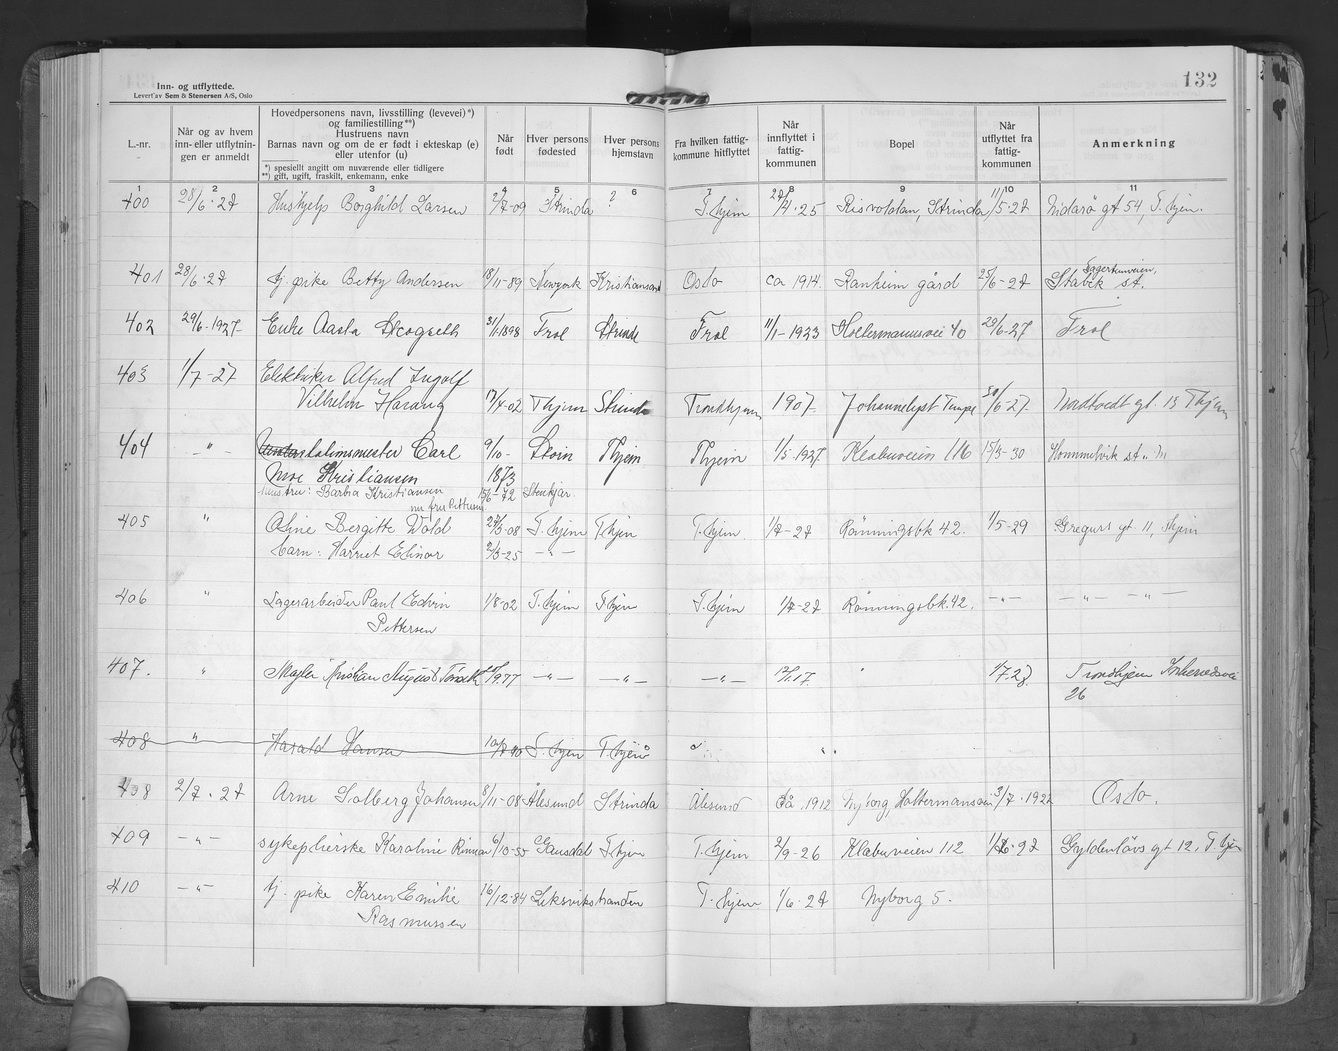 132
Inn- og utflyttede.
Levert av Sem & Stenersen A/S, Oslo
L.-nr.
Når og av hvem inn- eller utflytningen er anmeldt
Hovedpersonens navn, livsstilling (levevei)*) og familiestilling**)
Hustruens navn
Barnas navn og om de er født i ekteskap (e) eller utenfor (u)
*) spesielt angitt om nuværende eller tidligere
**) gift, ugift, fraskilt, enkemann, enke
Når født
Hver persons fødested
Hver persons hjemstavn
Fra hvilken fattigkommune hitflyttet
Når innflyttet i fattigkommunen
Bopel
Når utflyttet fra fattigkommunen
Anmerkning
1 2 3 4 5 6 7 8 9 10 11
400 28/6-27 Hushjelp Borghild Larsen 2/7-09 Strinda ? T.hjem 27/4-25 Risvoldan, Strinda 11/5-27 Nidarö gt 54, T.hjem.
401 28/6-27 tj. pike Betty Andersen 18/11-89 Newyork Kristiansand Oslo ca 1914. Ranheim gård 25/6-27 Stabek st.
402 29/6-1927. Enke Aasta Skogseth 31/1-1898 Frol Strinda Frol 11/1-1923 Holtermannsvei 40 29/6-27 Frol
403 1/7-27 Elektriker Alfred Ingolf
Vilhelm Harang 17/4-02 Thjem Strinda Trondhjem 1907. Johanneslyst Tempe 30/6-27. Nordtvedt gt. 15 Thjem
404 -"- Carl 9/10- Thjem Thjem 1/5-1927 Klæbuveien 116 15/5-30 Hommelvik st.
Kristiansen 1873
Hustru: Barbra Kristiansen 15/6-72 Stenkjær.
nu fru Pettersen
405 " Oline Bergitte Wold 27/3-08 T.hjem T.hjem T.hjem 1/7-27 Rönningsbk 42. 1/5-29 Gregus gt. 11, Thjem
barn: Harriet Elinor 2/3-25 -"-
406 " Lagerarbeider Paul Edvin 1/8-02 T.hjem T.hjem T.hjem 1/7-27 Rönningsbk. 42. -"- -"- -"-
Pettersen
407. " August -"- -"- -"- 12/1.17. " 1/7.27. Trondhjem
26
408 " Harald Hansen T.hjem T.hjem
408 2/7.27 Arne Solberg Johansen 8/11-08 Ålesund Strinda Ålesund Ca. 1912 Nyborg, Holtermansvei 3/7.1927 Oslo.
409 -"- sykepleierske Karoline Rinnan 6/10-55 T.hjem T.hjem 2/9-26 Klæbuveien 112 Gyldenlövs gt 12, T.hjem
410 -"- tj. pike Karen Emilie 16/12-84 Leksvikstranden T.hjem 1/6-27 Nyborg 5.
Rasmussen